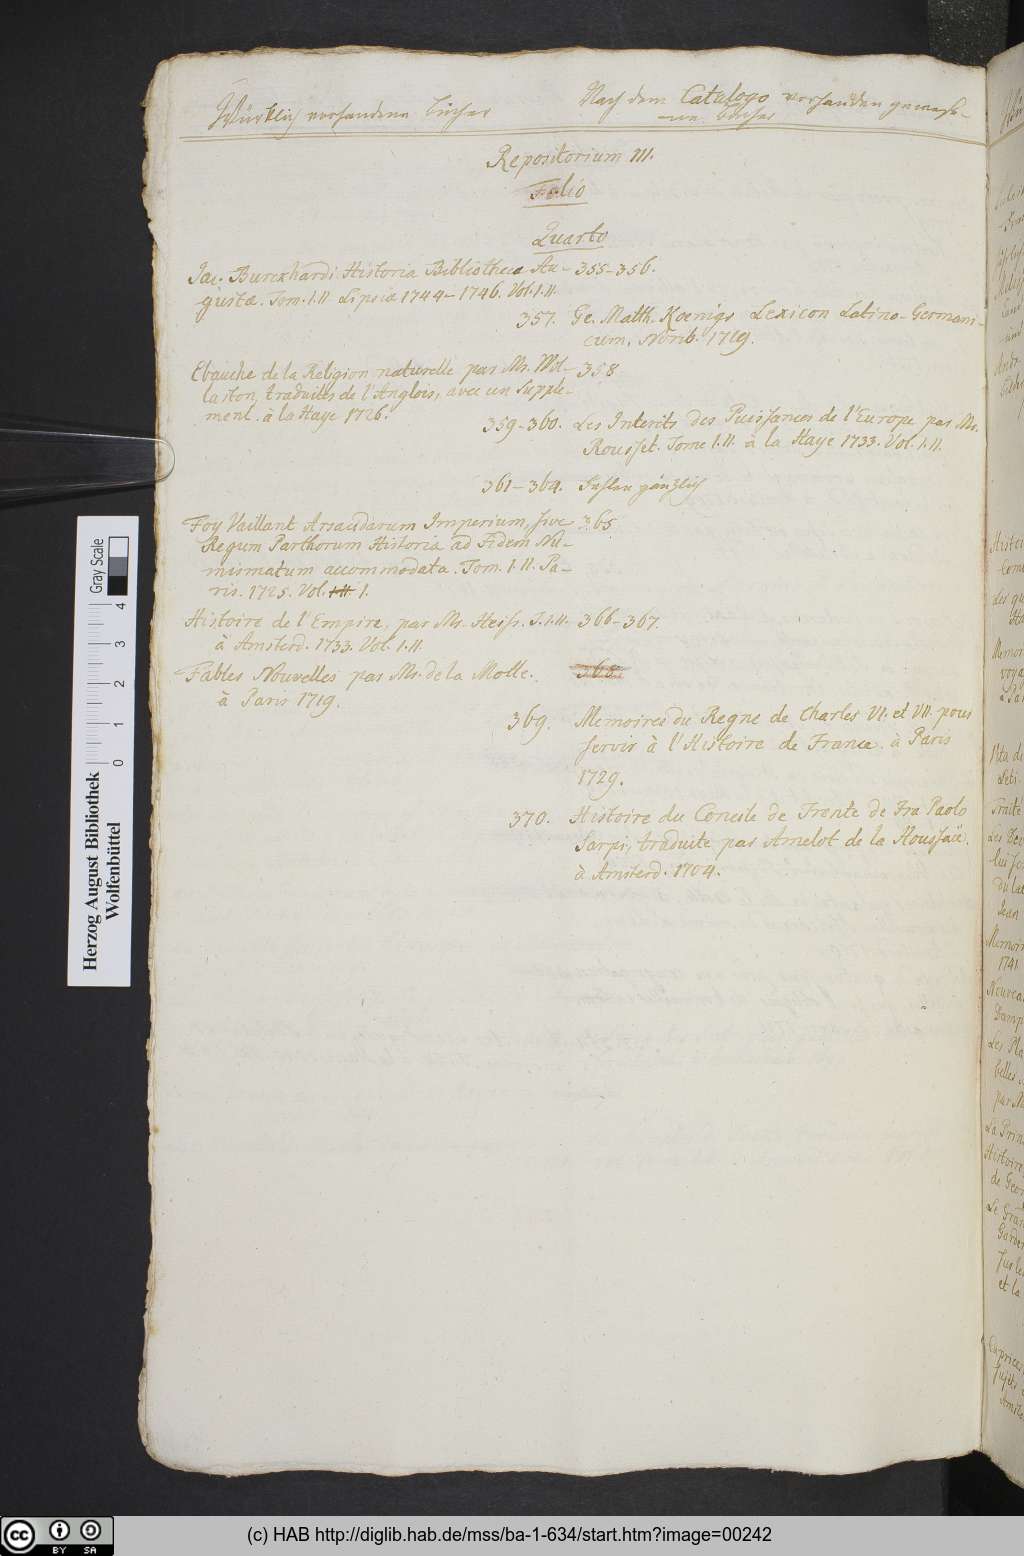 Würklich vorhandene Bücher
Nach dem Catalogo vorhanden gewese-
ne Bücher
Repositorium III.
Folio
Quarto
Jac. Burckhardi Historia Bibliothecæ Au-
gustæ. Tom. I. II. Lipsiæ 1744-1746. Vol. I. II.
355-356.
357. Ge. Matth. Koenigs Lexicon Latino-Germani-
cum, Norib. 1719.
Ebauche de la Religion naturelle par Mr. Wol-
laston, traduite de l'Anglois, avec un Supple-
ment. à la Haye 1726.
358
359-360. Les Interêts des Puissances de l'Europe par Mr.
Rousset. Tome I. II. à la Haye 1733. Vol. I. II.
361-364. Fehlen gänzlich
Foy Vaillant Arsacidarum Imperium, sive
Regum Parthorum Historia ad Fidem Nu-
mismatum accommodata. Tom. I. II. Pa-
ris. 1725. Vol. I.
365
Histoire de l'Empire, par Mr. Heiss. T. I. II.
à Amsterd. 1733. Vol. I. II.
366-367.
Fables Nouvelles par Mr. de la Motte.
à Paris 1719.
368.
369. Memoires du Regne de Charles VI. et VII. pour
servir à l'Histoire de France. à Paris
1729.
370. Histoire du Concile de Trente de Fra Paolo
Sarpi, traduite par Amelot de la Houssaie.
à Amsterd. 1704.
Herzog August Bibliothek
Wolfenbüttel
Gray Scale
0 1 2 3 4
cc BY SA
(c) HAB http://diglib.hab.de/mss/ba-1-634/start.htm?image=00242